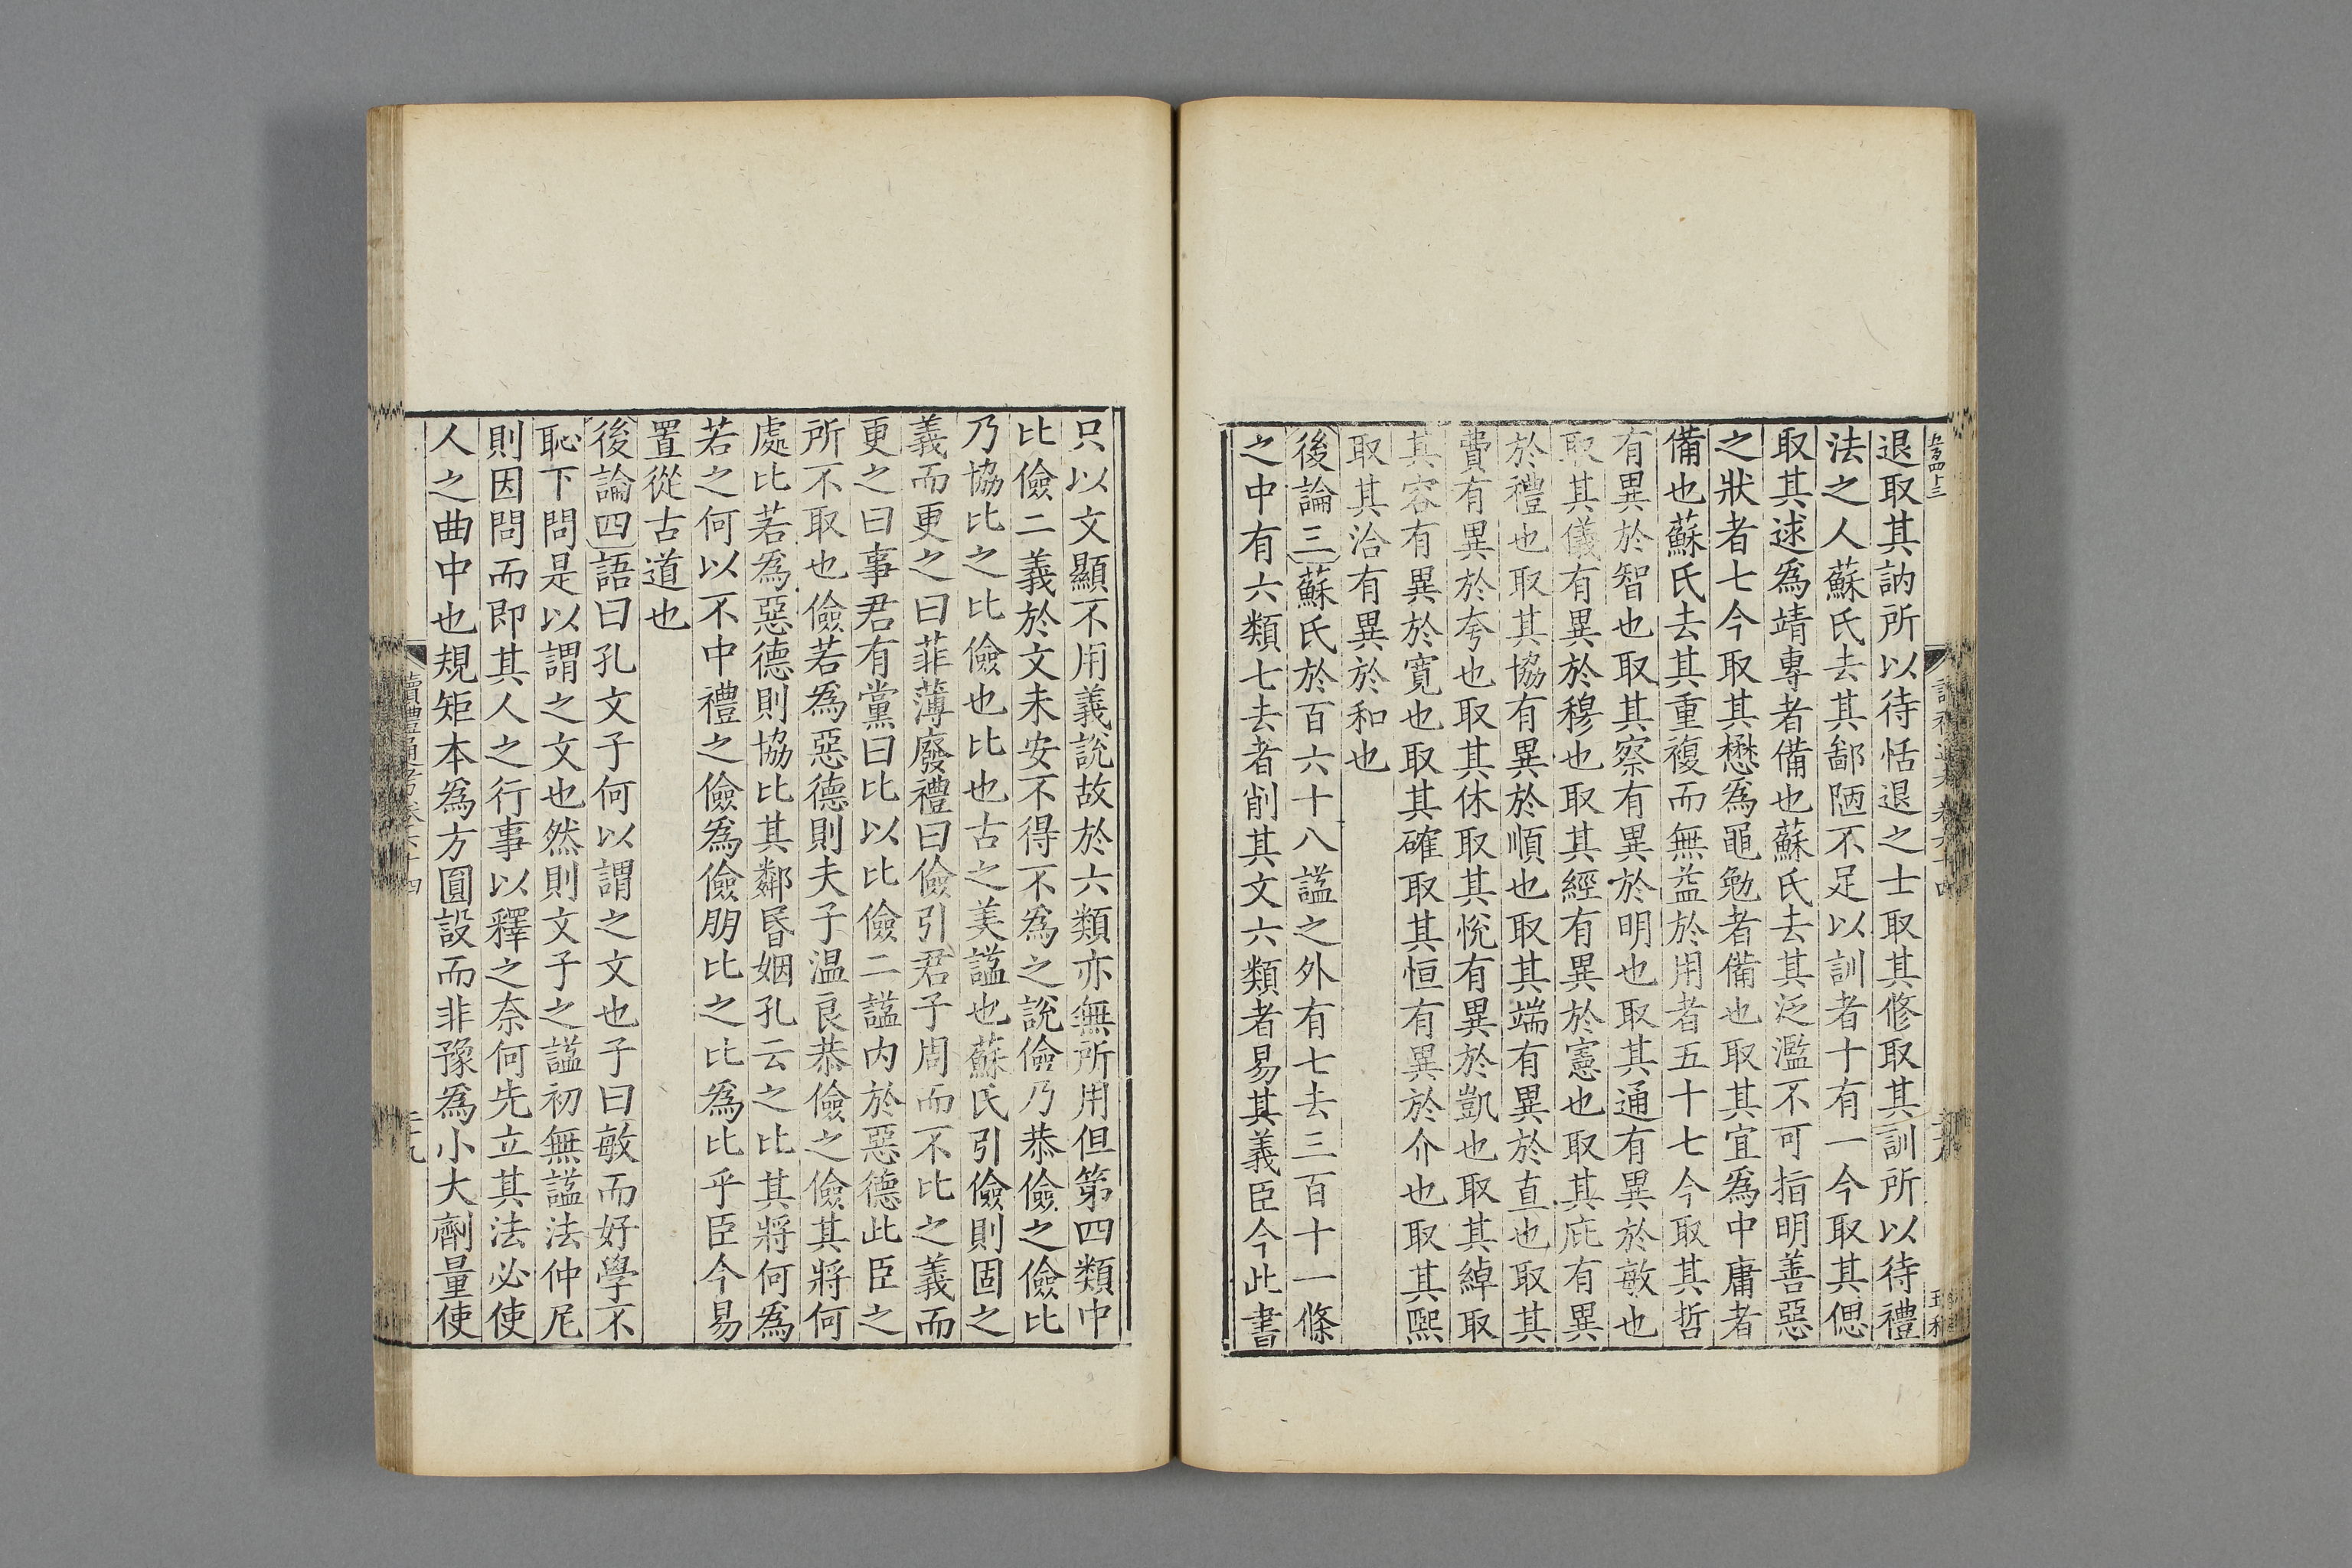 五百四十三
退取其訥所以待恬退之士取其修取其訓所以待禮
法之人蘇氏去其鄙陋不足以訓者十有一今取其偲
取其逑爲靖專者備也蘇氏去其泛濫不可指明善惡
之狀者七今取其懋爲黽勉者備也取其宜爲中庸者
備也蘇氏去其重複而無益於用者五十七今取其哲
有異於智也取其察有異於明也取其通有異於敏也
取其儀有異於穆也取其經有異於憲也取其庇有異
於禮也取其協有異於順也取其端有異於直也取其
費有異於夸也取其休取其悅有異於凱也取其綽取
其容有異於寬也取其確取其恒有異於介也取其熙
取其洽有異於和也
後論三蘇氏於百六十八諡之外有七去三百十一條
之中有六類七去者削其文六類者易其義臣今此書
只以文顯不用義說故於六類亦無所用但第四類中
比儉二義於文未安不得不爲之說儉乃恭儉之儉比
乃協比之比儉也比也古之美諡也蘇氏引儉則固之
義而更之曰菲薄廢禮曰儉引君子周而不比之義而
更之曰事君有黨曰比以比儉二諡内於惡德此臣之
所不取也儉若爲惡德則夫子温良恭儉之儉其將何
處比若爲惡德則協比其鄰昬姻孔云之比其將何爲
若之何以不中禮之儉爲儉朋比之比爲比乎臣今易
置從古道也
後論四語曰孔文子何以謂之文也子曰敏而好學不
恥下問是以謂之文也然則文子之諡初無諡法仲尼
則因問而即其人之行事以釋之奈何先立其法必使
人之曲中也規矩本爲方圓設而非豫爲小大劑量使
讀禮通考卷六十四